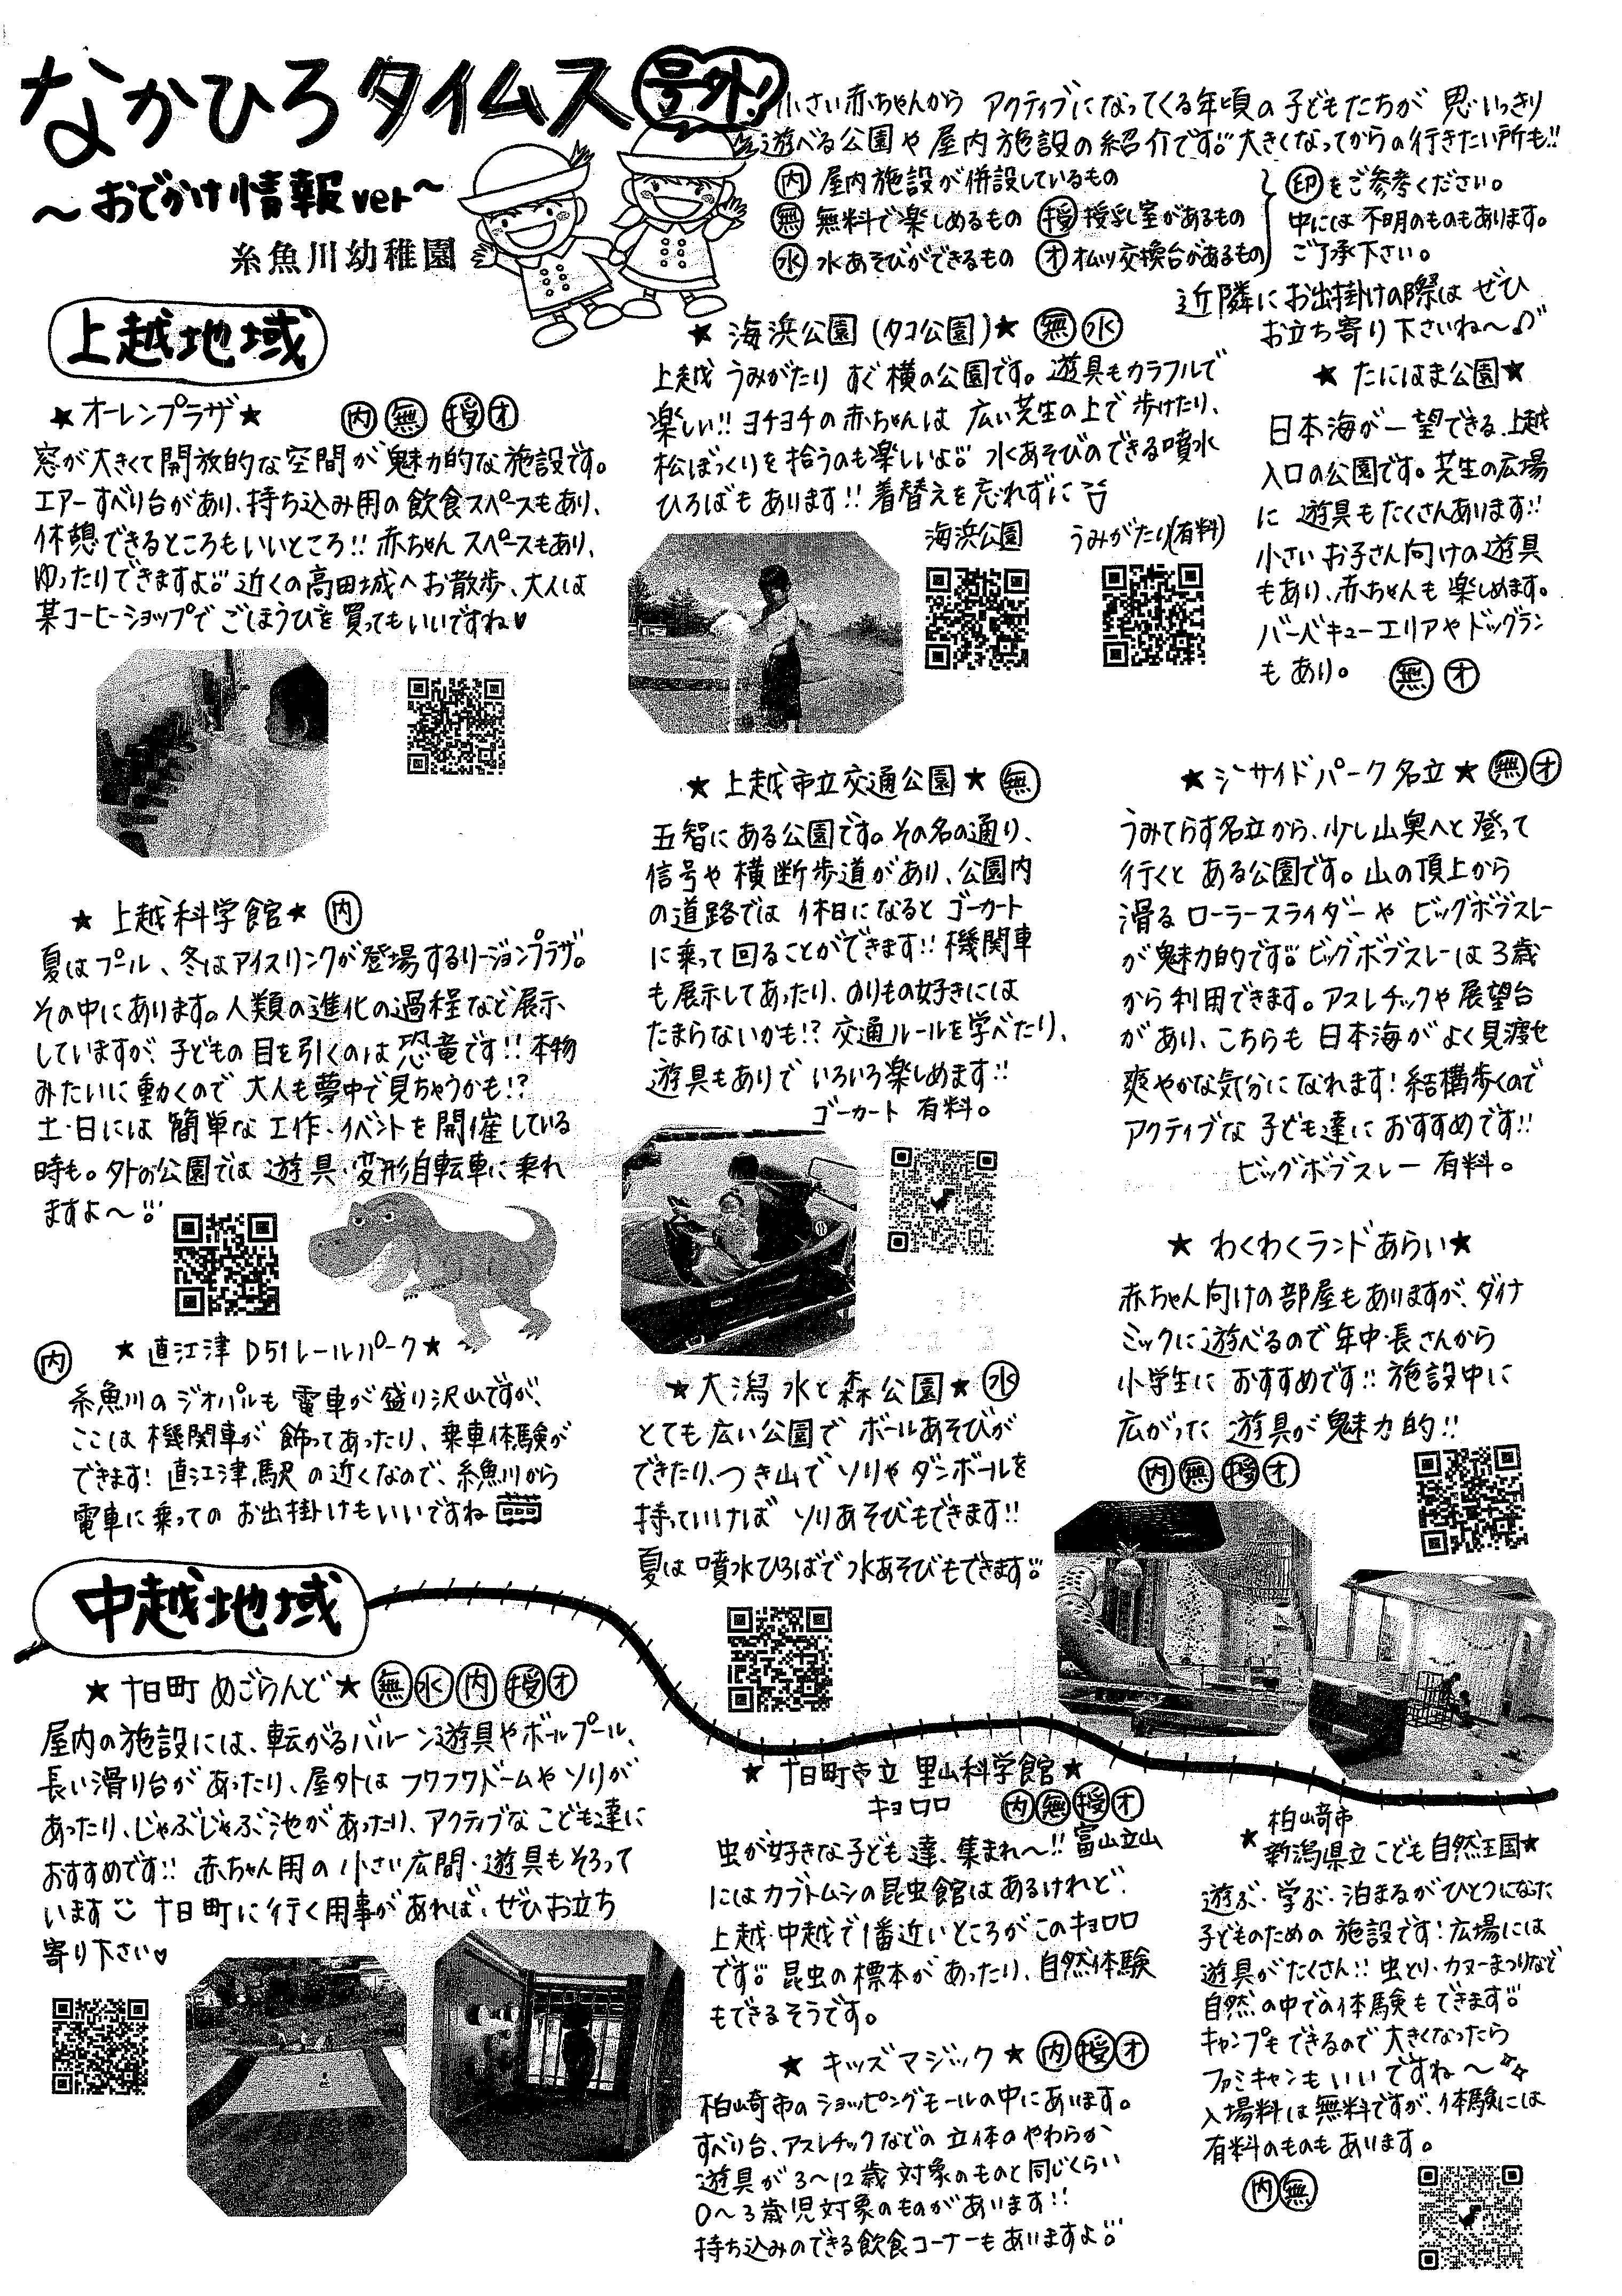 なかひろタイムス 号外!
～おでかけ情報ver～
糸魚川幼稚園
小さい赤ちゃんから アクティブになってくる年頃の子どもたちが 思いっきり
遊べる公園や屋内施設の紹介です!! 大きくなってからの行きたい所も!!
内 屋内施設が併設しているもの
無 無料で楽しめるもの 授 授乳室があるもの
水 水あそびができるもの オ オムツ交換台があるもの
印をご参考ください。
中には不明のものもあります。
ご了承下さい。
近隣にお出掛けの際は ぜひ
お立ち寄り下さいね～♪
上越地域
★オーレンプラザ★ 内 無 授 オ
窓が大きくて開放的な空間が魅力的な施設です。
エアーすべり台があり、持ち込み用の飲食スペースもあり、
休憩できるところもいいところ!! 赤ちゃんスペースもあり、
ゆったりできますよ!! 近くの高田城へお散歩、大人は
某コーヒーショップで ごほうびを買ってもいいですね♥
★ 上越科学館★ 内
夏はプール、冬はアイスリンクが登場するリージョンプラザ。
その中にあります。人類の進化の過程など展示
していますが、子どもの目を引くのは恐竜です!! 本物
みたいに動くので 大人も夢中で見ちゃうかも!?
土・日には 簡単な工作・イベントを開催している
時も。外の公園では 遊具・変形自転車に乗れ
ますよ～!!
内 ★ 直江津 D51レールパーク★
糸魚川のジオパルも 電車が盛り沢山ですが、
ここは機関車が 飾ってあったり、乗車体験が
できます! 直江津駅の近くなので、糸魚川から
電車に乗っての お出掛けもいいですね
★ 海浜公園 (タコ公園)★ 無 水
上越 うみがたり すぐ横の公園です。遊具もカラフルで
楽しい!! ヨチヨチの赤ちゃんは 広い芝生の上で 歩けたり、
松ぼっくりを拾うのも楽しいよ!! 水あそびのできる噴水
ひろばもあります!! 着替えを忘れずに
海浜公園 うみがたり(有料)
★ 上越市立交通公園★ 無
五智にある公園です。その名の通り、
信号や横断歩道があり、公園内
の道路では 休日になると ゴーカート
に乗って回ることができます!! 機関車
も展示してあったり、のりもの好きには
たまらないかも!? 交通ルールを学べたり、
遊具もありで いろいろ楽しめます!!
ゴーカート 有料。
★大潟水と森公園★ 水
とても広い公園で ボールあそびが
できたり、つき山で ソリや ダンボールを
持っていけば ソリあそびもできます!!
夏は噴水ひろばで水あそびもできます!!
★ たにはま公園★
日本海が一望できる、上越
入口の公園です。芝生の広場
に 遊具もたくさんあります!!
小さいお子さん向けの遊具
もあり、赤ちゃんも楽しめます。
バーベキューエリアやドッグラン
もあり。 無 オ
★ シーサイドパーク名立★ 無 オ
うみてらす名立から、少し山奥へと登って
行くと ある公園です。山の頂上から
滑る ローラースライダーや ビッグボブスレー
が魅力的です!! ビッグボブスレーは3歳
から利用できます。アスレチックや展望台
があり、こちらも日本海がよく見渡せ
爽やかな気分になれます! 結構歩くので
アクティブな子ども達に おすすめです!!
ビッグボブスレー 有料。
★ わくわくランドあらい★
赤ちゃん向けの部屋もありますが、ダイナ
ミックに遊べるので年中・長さんから
小学生に おすすめです!! 施設中に
広がった 遊具が魅力的!!
内 無 授 オ
中越地域
★ 十日町 めごらんど★ 無 水 内 授 オ
屋内の施設には、転がるバルーン遊具やボールプール、
長い滑り台があったり、屋外は フワフワドームや ソリが
あったり、じゃぶじゃぶ池があったり、アクティブなこども達に
おすすめです!! 赤ちゃん用の小さい広間・遊具もそろって
います 十日町に行く用事があれば、ぜひお立ち
寄り下さい♥
★ 十日町市立 里山科学館★
キョロロ 内 無 授 オ
虫が好きな子ども達、集まれ～!! 富山立山
にはカブトムシの昆虫館はあるけれど、
上越・中越で1番近いところがこのキョロロ
です!! 昆虫の標本があったり、自然体験
もできるそうです。
★ キッズマジック★ 内 授 オ
柏崎市のショッピングモールの中にあります。
すべり台、アスレチックなどの 立体のやわらか
遊具が3～12歳対象のものと同じくらい
0～3歳児対象のものがあります!!
持ち込みのできる飲食コーナーもありますよ!!
柏崎市
★ 新潟県立こども自然王国★
遊ぶ・学ぶ・泊まるがひとつになった
子どものための 施設です! 広場には
遊具がたくさん!! 虫とり・カヌーまつりなど
自然の中での体験もできます!!
キャンプもできるので 大きくなったら
ファミキャンもいいですね～
入場料は無料ですが、体験には
有料のものもあります。
内 無